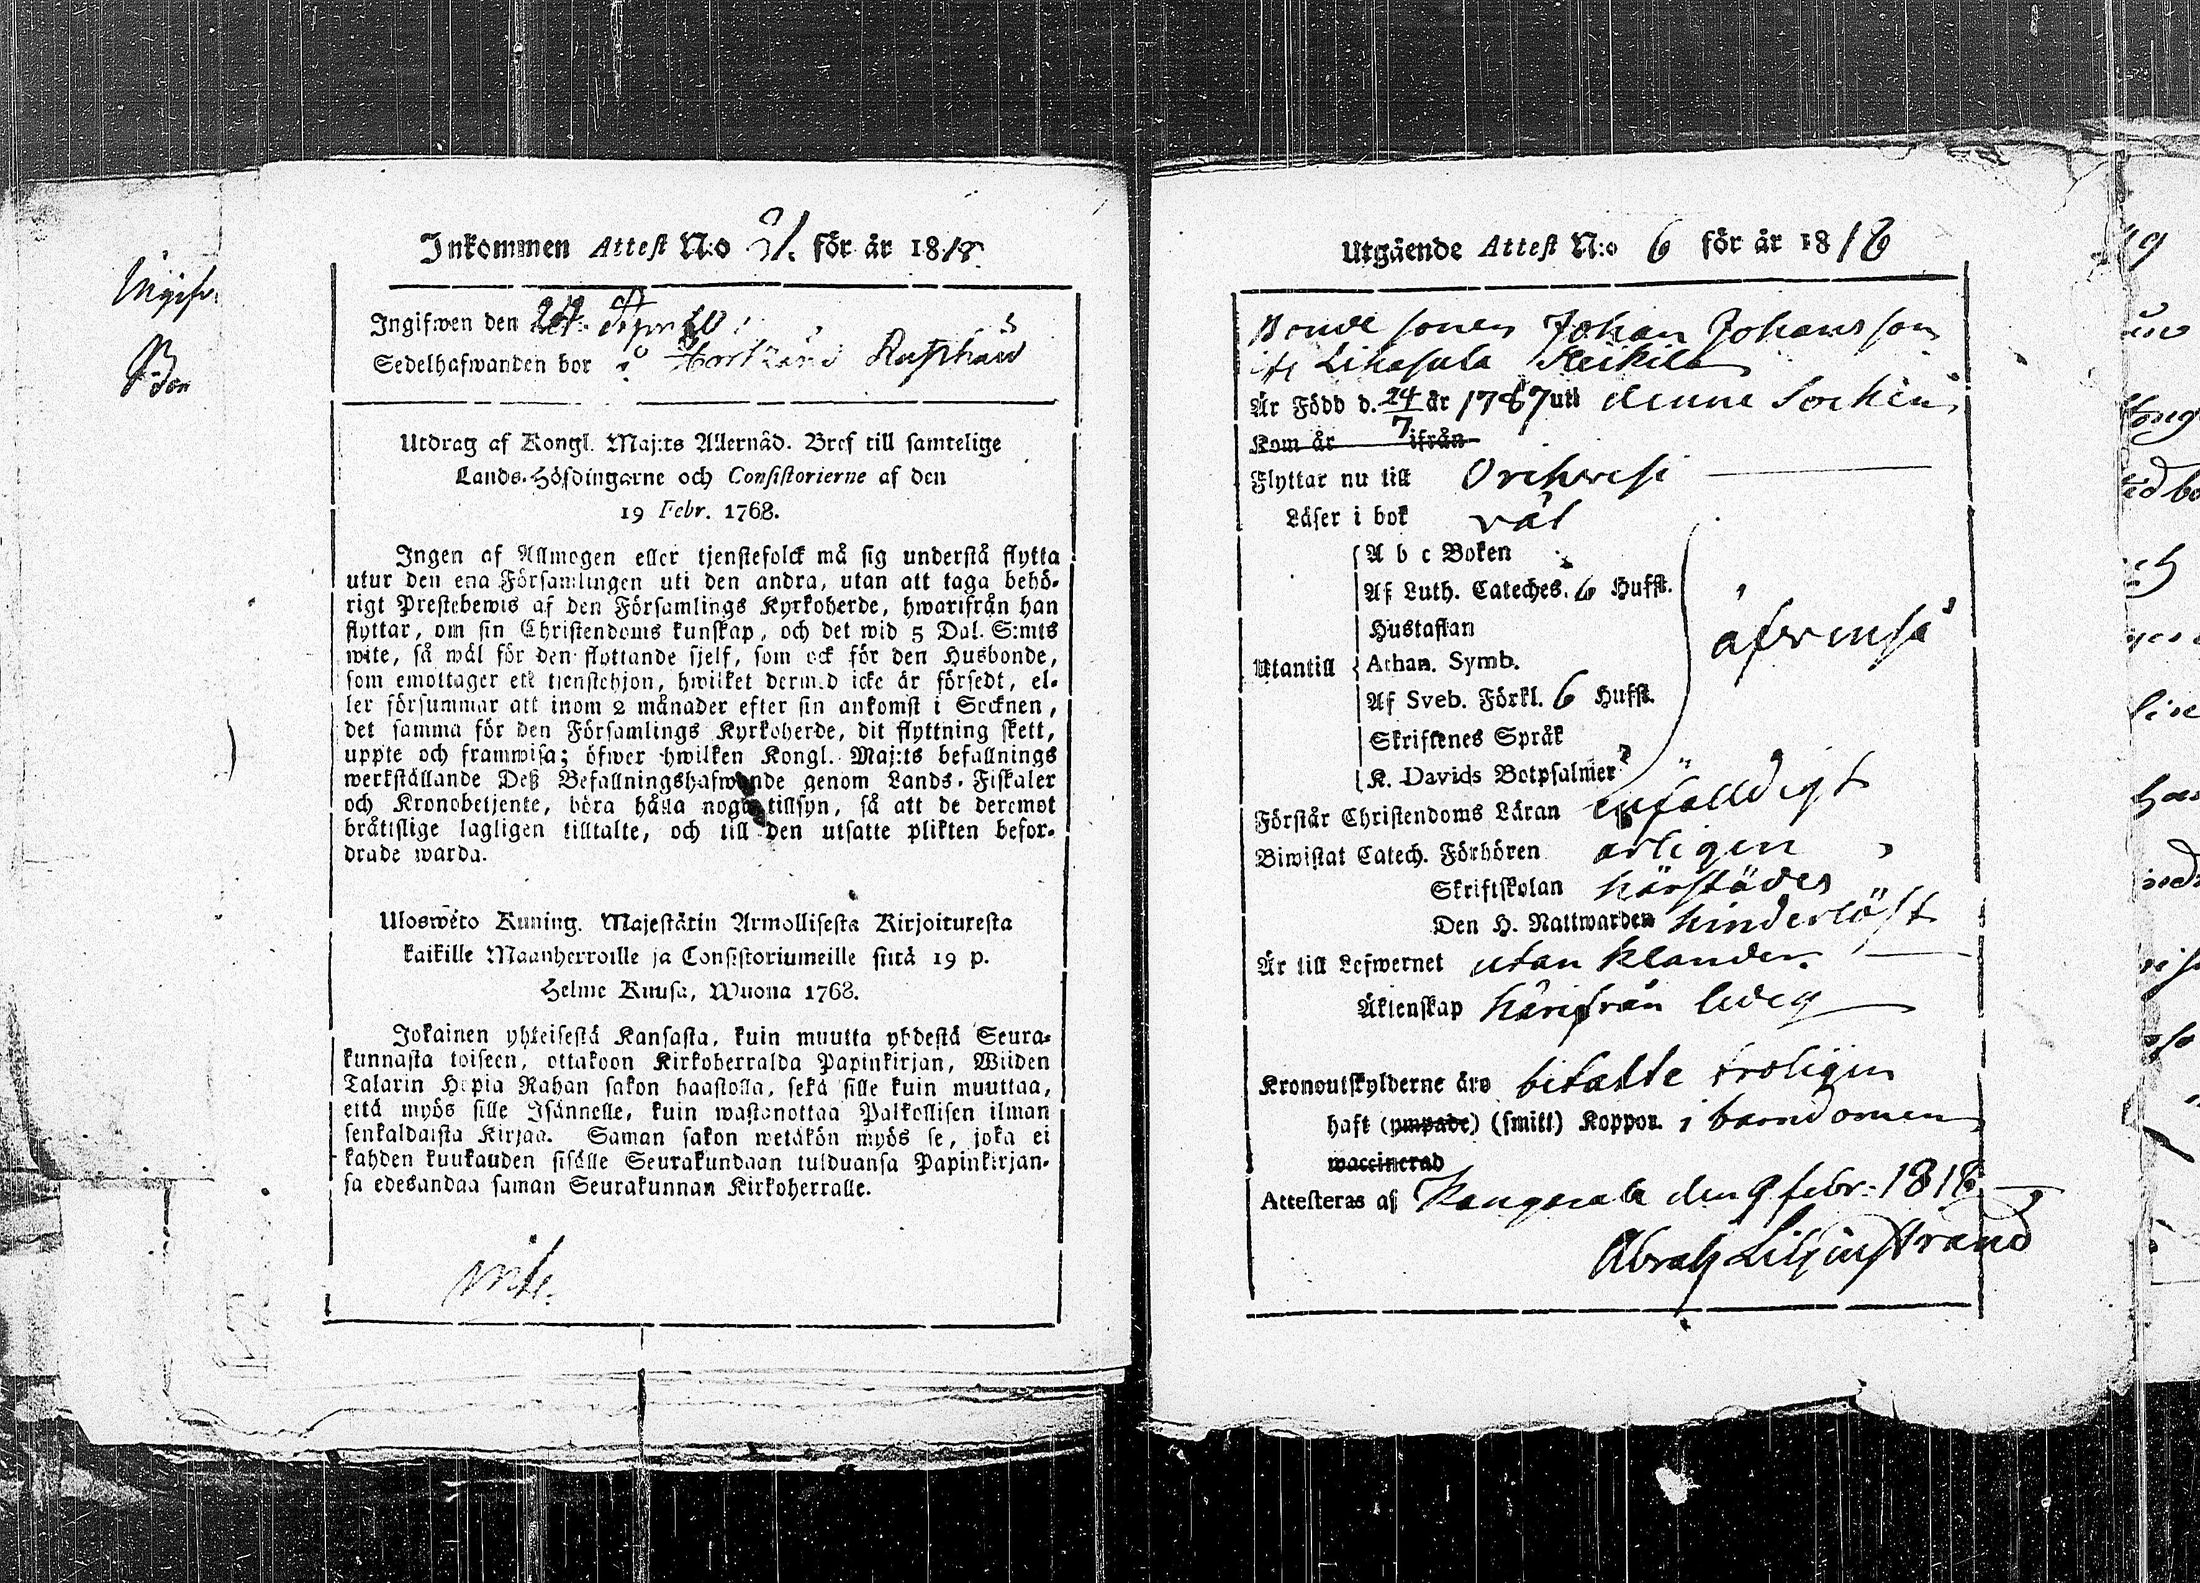 Inkommen Attest N:o 21. för år 1818.
Ingifwen den 24 April
Sedelhafwanden bor i
Utdrag af Kongl. Maj:ts Allernåd. Bref till samtelige
Lands-Höfdingarne och Consistorierne af den
19 Febr. 1768.
Ingen af Allmogen eller tjenstefolck må sig understå flytta
utur den ena Församlingen uti den andra, utan att taga behö-
rigt Prestebewis af den Församlings Kyrkoherde, hwarifrån han
flyttar, om sin Christendoms kunskap, och det wid 5 Dal. S:mts
wite, så wäl för den flyttande sjelf, som ock för den Husbonde,
som emottager ett tjenstehjon, hwilket dermed icke är försedt, el-
ler försummar att inom 2 månader efter sin ankomst i Socknen,
det samma för den Församlings Kyrkoherde, dit flyttning skett,
uppte och framwisa; öfwer hwilken Kongl. Maj:ts befallnings
werkställande Deß Befallningshafwande genom Lands-Fiskaler
och Kronobetjente, böra hålla noga tillsyn, så att de deremot
bråttslige lagligen tilltalte, och till den utsatte plikten befor-
drade warda.
Uloswéto Kuning. Majestätin Armollisesta Kirjoituresta
kaikille Maanherroille ja Consistoriumeille siitä 19 p.
Helme Kuusa, Wuona 1768.
Jokainen yhteisestä Kansasta, kuin muutta yhdestä Seura-
kunnasta toiseen, ottakoon Kirkoherralda Papinkirjan, Wiiden
Talarin Hopia Rahan sakon haastolla, sekä sille kuin muuttaa,
että myös sille Isännelle, kuin wastanottaa Palkollisen ilman
senkaldaista Kirjaa. Saman sakon wetäkön myös se, joka ei
kahden kuukauden sisälle Seurakundaan tulduansa Papinkirjan-
sa edesandaa saman Seurakunnan Kirkoherralle.
Utgående Attest N:o 6 för år 1818
Bonde sonen Johan Johansson
Heikilä
Är Född d. 24/7 år 1787 uti denne Sochen
Kom år ifrån
Flyttar nu till Orihwesi
Läser i bok väl
A b c Boken
Af Luth. Cateches. 6 Hufst.
Hustaflan
Utantill Athan. Symb.
äfvenså
Af Sveb. Förkl. 6 Hufst.
Skriftenes Språk
K. Davids Botpsalmer
Förstår Christendoms Läran enfalldigt
Biwistat Catech. Förhören årligen
Skriftskolan härstädes
Den H. Nattwarden hinderlöst
Är till Lefwernet utan klander.
Äktenskap härifrån ledig
Kronoutskylderne äro betalte troligen
haft (ympade) (smitt) Koppor. i barndomen
waccinerad
Attesteras af Kangasala den 9 febr. 1818
Abrah Liljenstrand